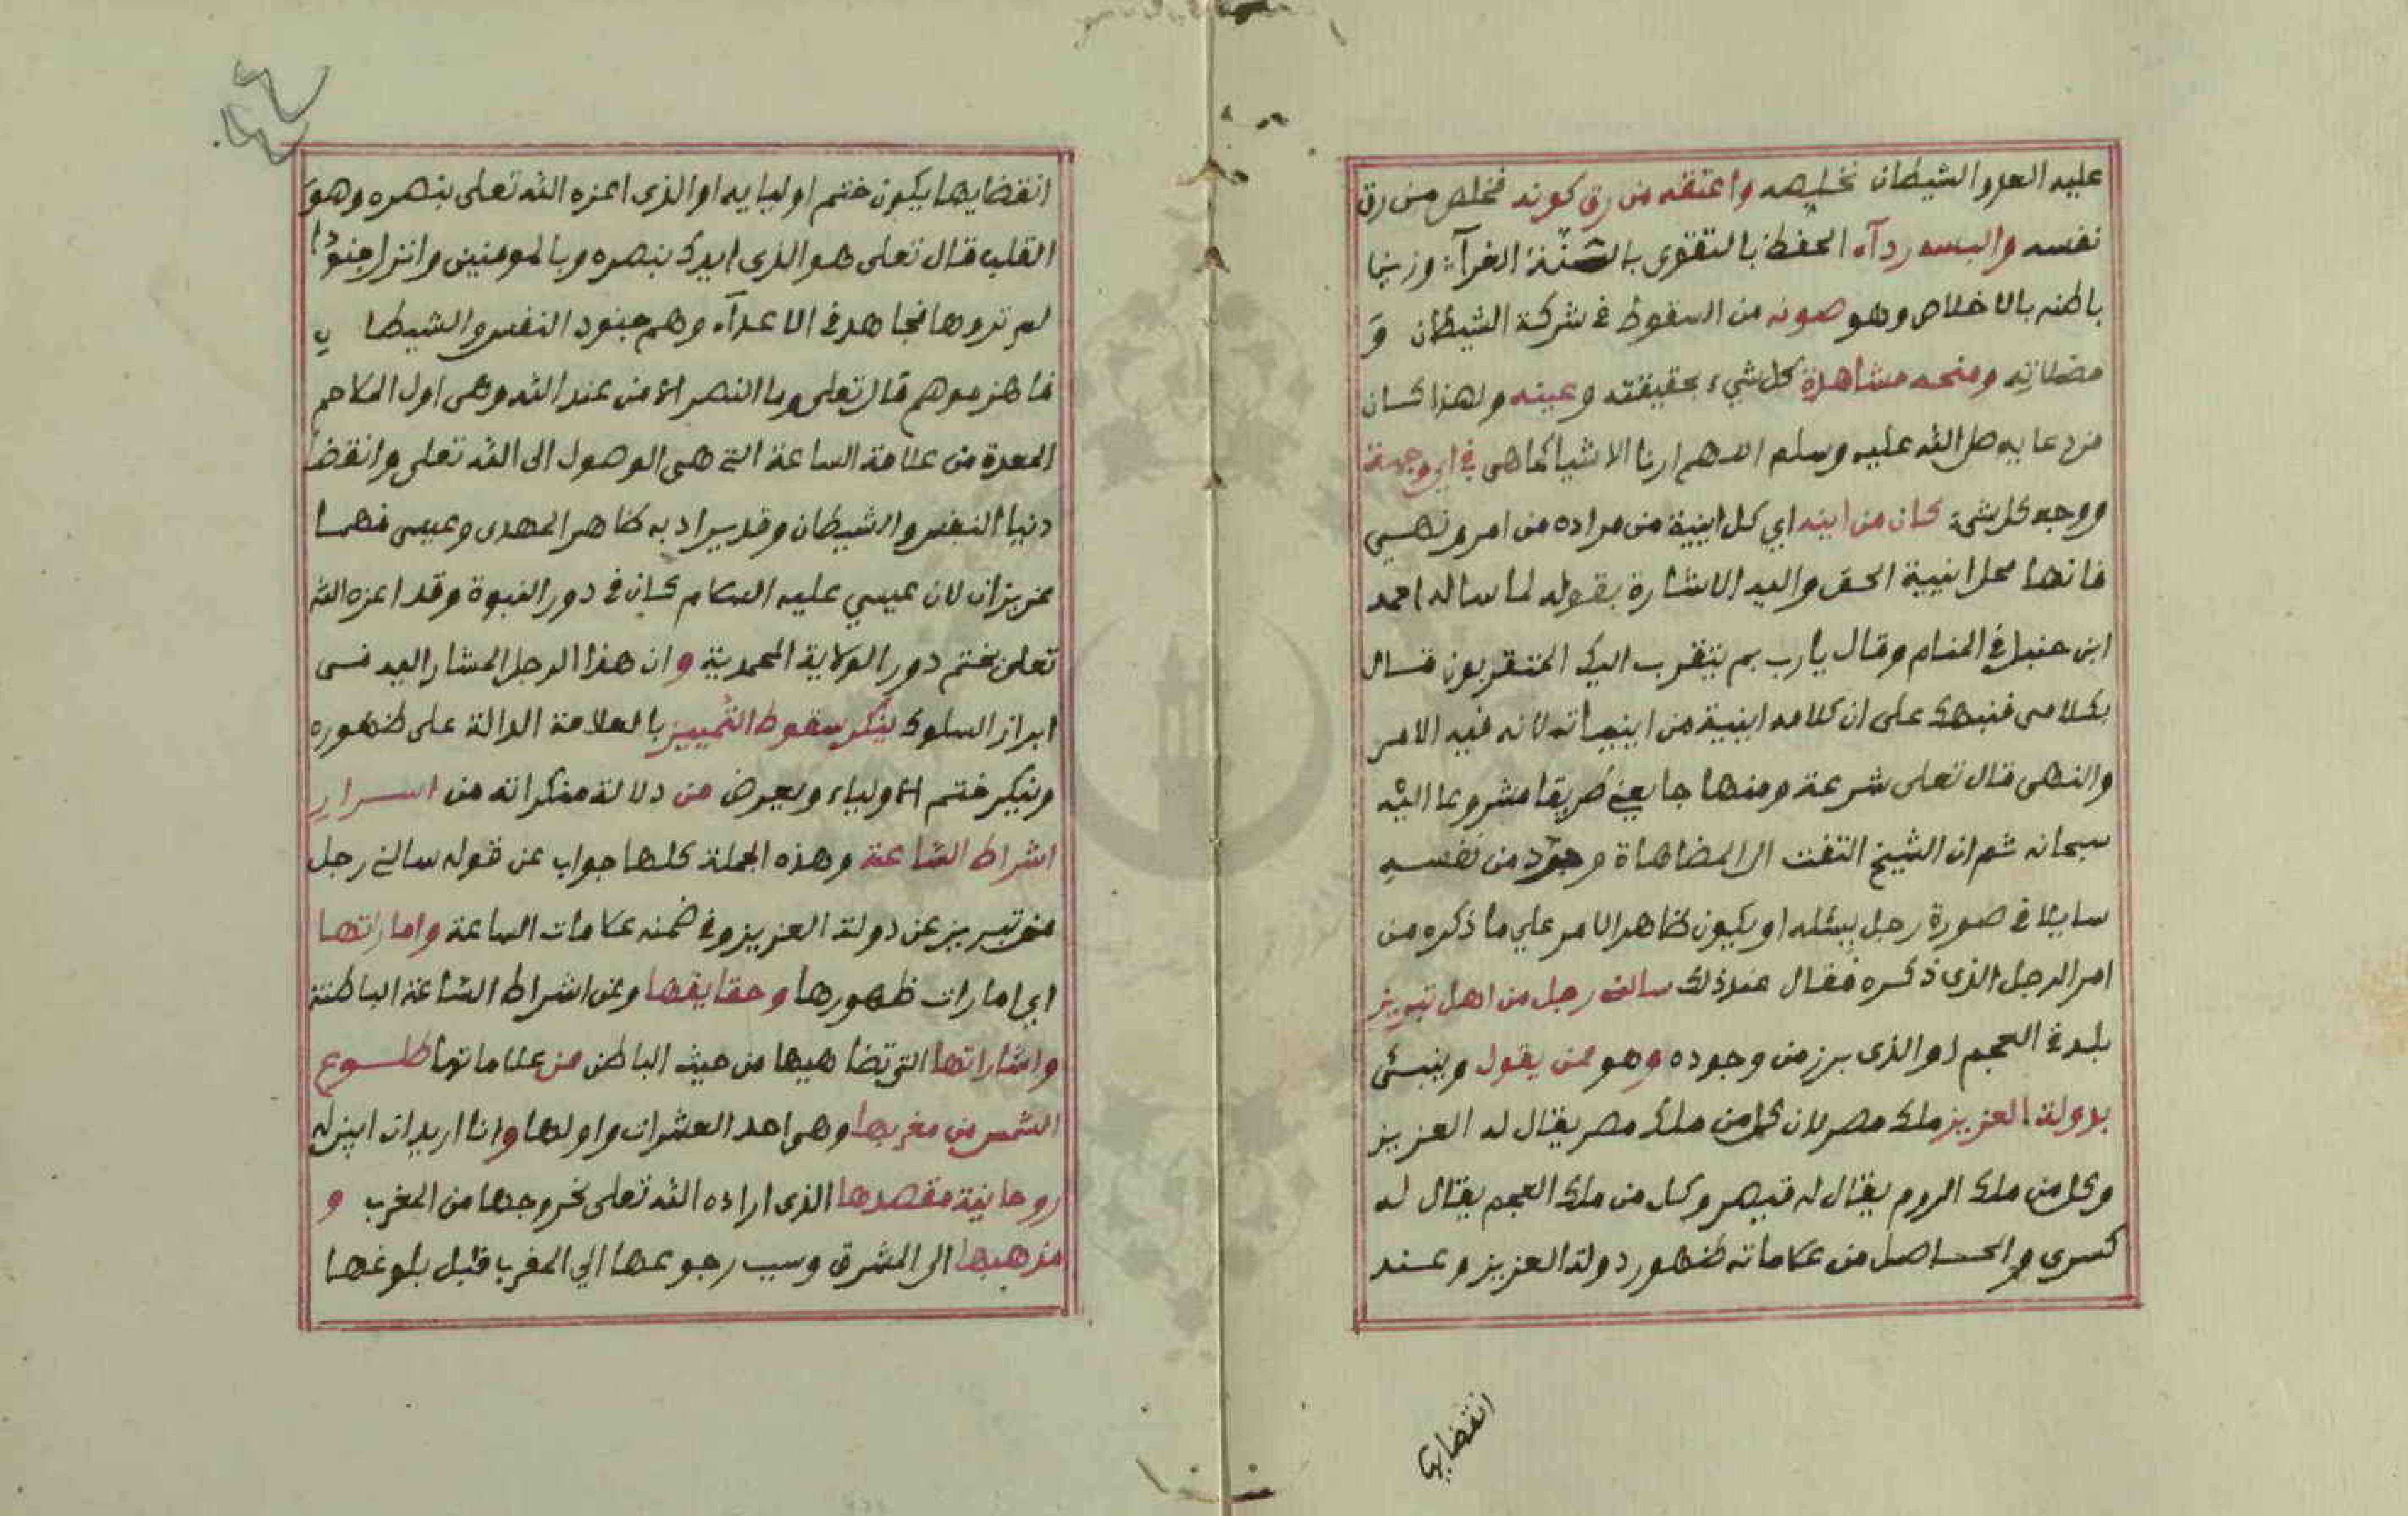 عليه العدو الشيطان نخلصه واعتقه من رق كونه فخلص من رق
نفسه والبسه ردآء الحفظ بالتقوى بالسنة الغرآء وزينها
باطنه بالاخلاص وهو صونه من السقوط في شركة الشيطان و
مضلاته ومنحه مشاهدة كل شيء بحقيقته وعينه ولهذا كان
من دعايه صلى الله عليه وسلم اللهم ارنا الاشيا كما هي في اي وجهة
ووجه كل شيء كان من اينه اي كل اينية من مراده من امر ونهي
فانها محل اينية الحق واليه الاشارة بقوله لما ساله احمد
ابن حنبل في المنام وقال يارب بم يتقرب اليك المتقربون قال
بكلامي فنبهك على ان كلامه اينية من اينياته لانه فيه الامر
والنهى قال تعلى شرعة ومنهاجا يعني طريقا مشروعا اليه
سبحانه ثم ان الشيخ التفت الى المضاهاة وجرد من نفسه
سايلا في صورة رجل يسئله او يكون ظاهر الامر علي ما ذكره من
امر الرجل الذى ذكره فقال عند ذلك سالني رجل من اهل تبريز
بلد في العجم او الذى برز من وجوده وهو ممن يقول وينبئ
بدولة العزيز ملك مصر لان كل من ملك مصر يقال له العزيز
وكل من ملك الروم يقال له قيصر وكل من ملك العجم يقال له
كسرى والحاصل من علاماته ظهور دولة العزيز وعند
انقضايها
انقضايها يكون ختم اوليايه او الذى اعزه الله تعلى بنصره وهو
القلب قال تعلى هو الذى ايدك بنصره وبالمومنين وانزل جنودا
لم تروها فجاهد في الاعدآء وهم جنود النفس والشيطان
فاهزموهم قال تعلى وما النصر الا من عند الله وهى اول الملاحم
المعدة من علامة الساعة التي هي الوصول الى الله تعلى وانقضا
دنيا النفس والشيطان وقد يراد به ظاهر المهدى وعيسى فهما
عزيزان لان عيسي عليه السلام كان في دور النبوة وقد اعزه الله
تعلى بختم دور الولاية المحمدية وان هذا الرجل المشار اليه في
ابراز السلوك ينكر سقوط التمييز بالعلامة الدالة على ظهوره
وينكر ختم الاولياء ويعرض من دلالة منكراته من اسرار
اشراط الساعة وهذه الجملة كلها جواب عن قوله سالني رجل
من تبريز عن دولة العزيز وفي ضمنه علامات الساعة واماراتها
اي امارات ظهورها وحقايقها وعن اشراط الساعة الباطنة
واشاراتها التي تضاهيها من حيث الباطن من علاماتها طلوع
الشمس من مغربها وهي احد العشرات واولها وانا اريد ان ابين له
روحانية مقصدها الذى اراده الله تعلى بخروجها من المغرب و
مذهبها الى المشرق وسبب رجوعها الي المغرب قبل بلوغها